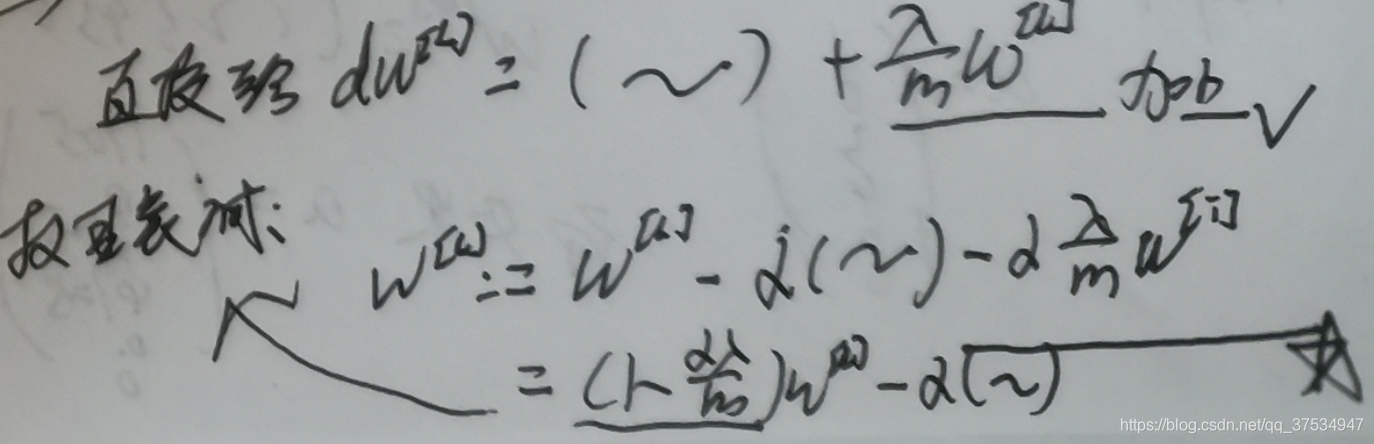 直接给 dw^[L] = (~) + λ/m w^[L] 加b √
权重衰减: w^[L] := w^[L] - α(~) - α λ/m w^[L]
= (1 - αλ/m) w^[L] - α(~) ☆
https://blog.csdn.net/qq_37534947